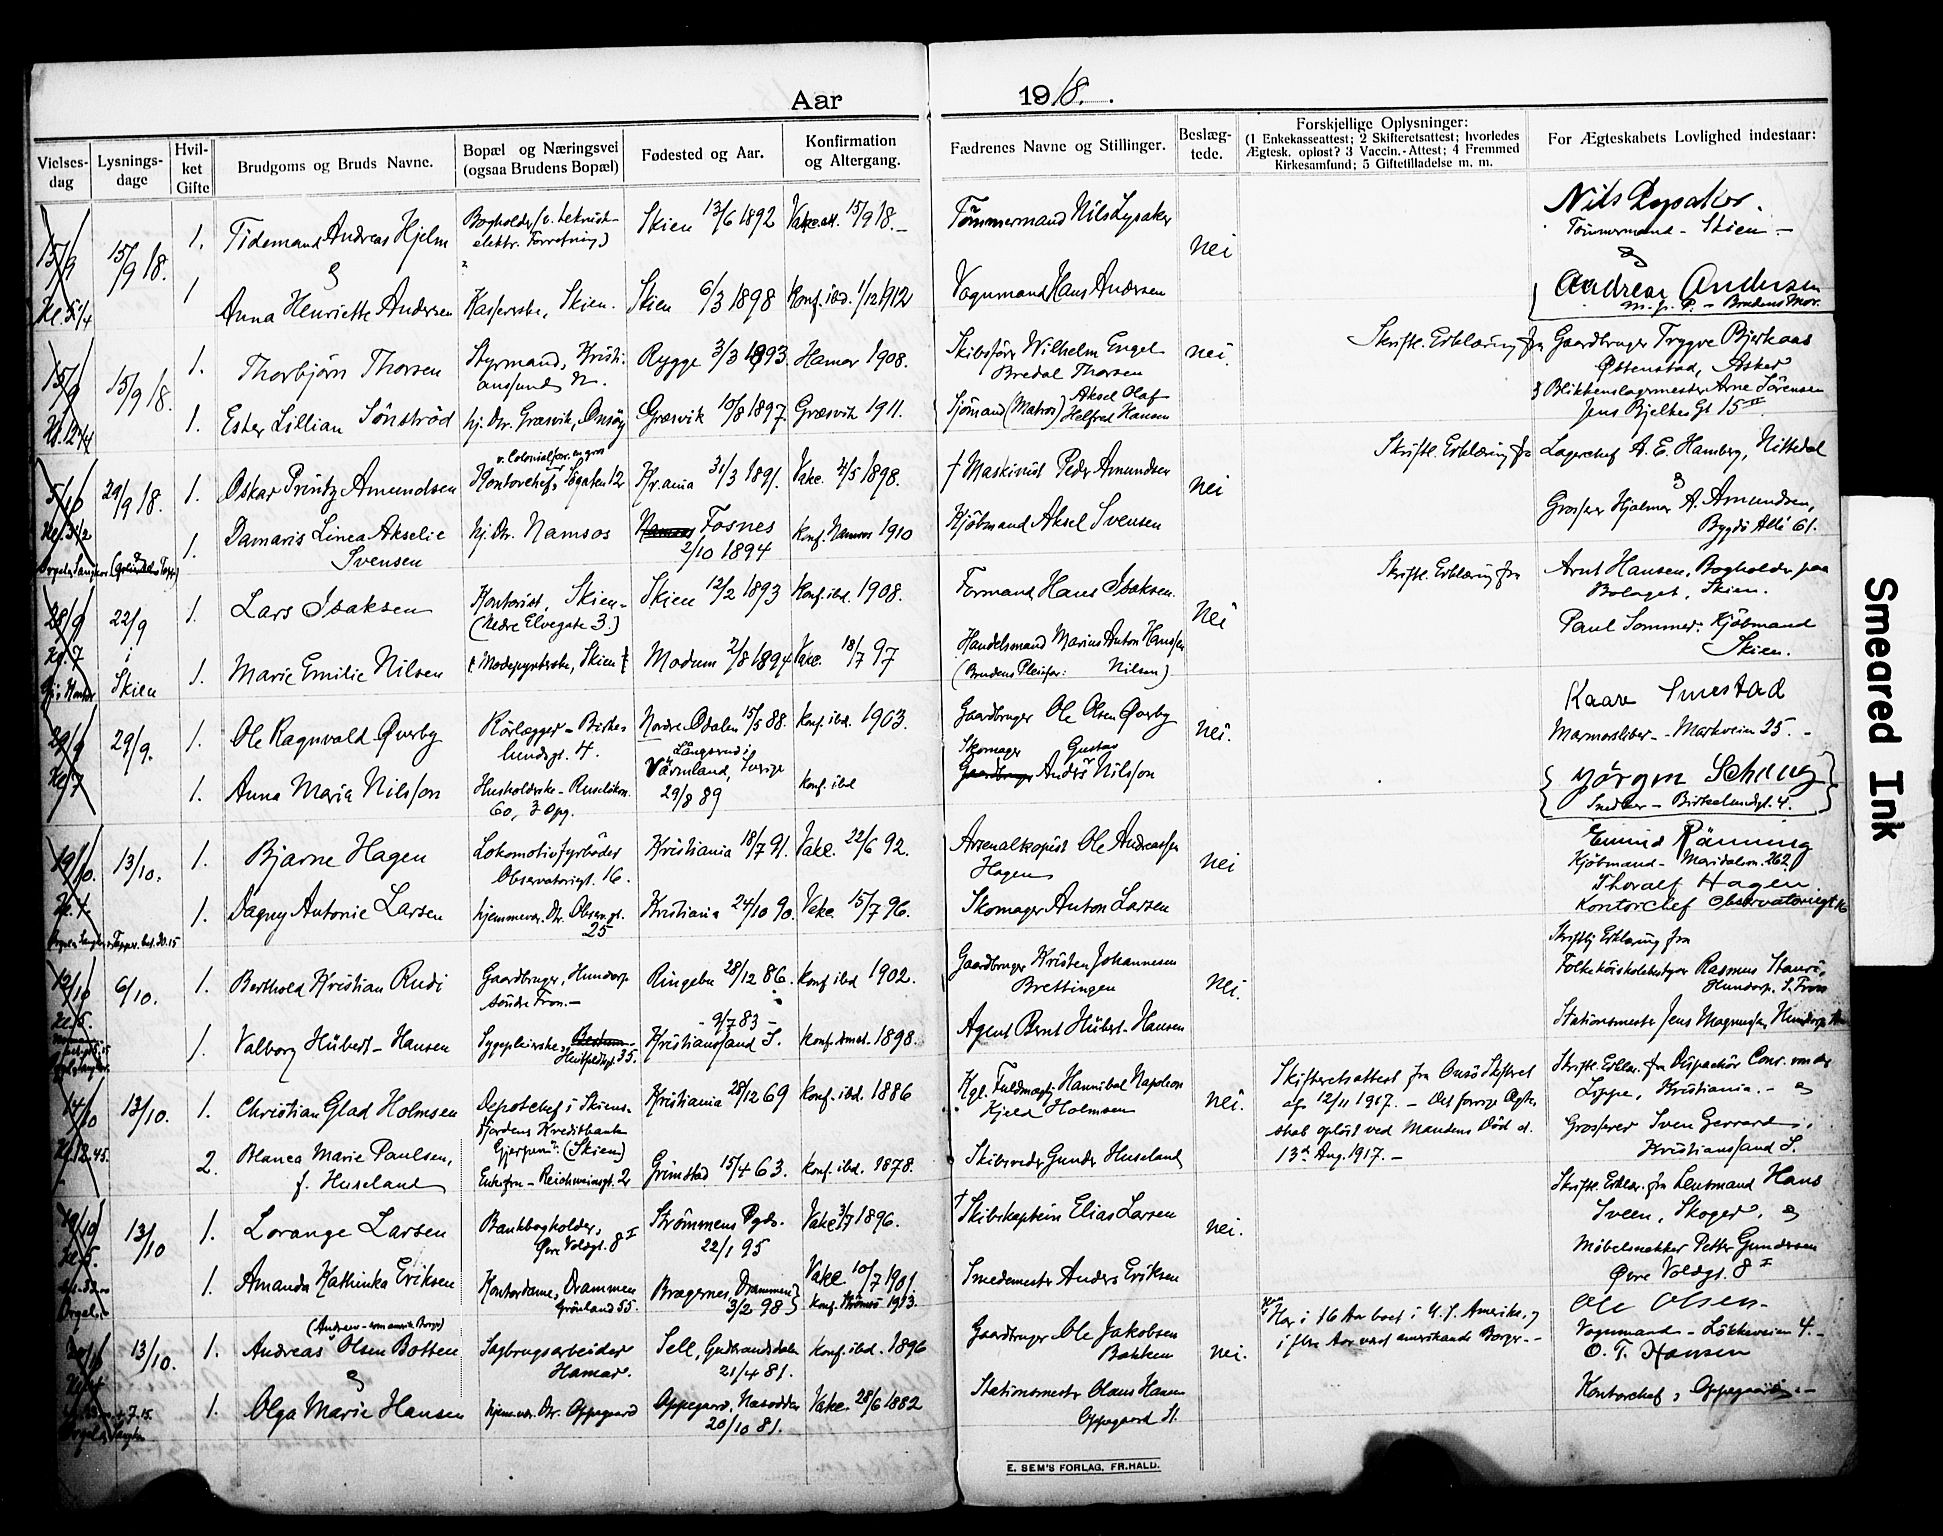 Aar 1918.
Vielses-dag
Lysnings-dage
Hvil-ket Gifte
Brudgoms og Bruds Navne.
Bopæl og Næringsvei (ogsaa Brudens Bopæl)
Fødested og Aar.
Konfirmation og Altergang.
Fædrenes Navne og Stillinger.
Beslæg-tede.
Forskjellige Oplysninger:
(1 Enkekasseattest; 2 Skifteretsattest; hvorledes
Ægtesk. opløst? 3 Vaccin.-Attest; 4 Fremmed
Kirkesamfund; 5 Giftetilladelse m. m.
For Ægteskabets Lovlighed indestaar:
15/9 15/9 18. 1. Tidemand Andreas Hjelm Bogholder (v. teknisk-elektr. Forretning) Skien 13/6 1892 15/9 18. Tömmermand Nils Lysaker nei Nils Lysaker.
Tömmermand - Skien -
&
1 Anna Henriette Andersen Kasserske, Skien. Skien 6/3 1898 Konf. ibd. 1/12 1912 Vognmand Hans Andersen Andrea Andersen
Brudens Mor.
15/9 15/9 18. 1. Thorbjörn Thorsen Styrmand, Kristiansund N. Rygge 3/3 1893. Hamar 1908. Skibsförer Wilhelm Engel Bredal Thorsen nei Skriftl. Erklæring fra Gaardbruger Trygve Bjerkaas
Østenstad, Asker
& Blikkenslagermester Arne Sörensen
Jens Bjelkes Gt 15 II
1. Ester Lillian Sönströd hj. Dtr. Græsvik, Onsöy Græsvik 10/8 1897. Græsvik 1911. Sjömand (Matros) Aksel Olaf Helfred Hansen
5/10 29/9 18. 1. Oskar Printz Amundsen v. Colonialforr. en gros Kontorchef, Kr.ania 31/3 1891. Vake. 4/5 1898. † Maskinist Peder Amundsen nei Skriftl. Erklæring fra Lagerchef A. E. Hamberg, Nittedal
&
Grosserer Hjalmar A. Amundsen,
Bygdö Allé 61.
1. Damaris Linea Akselie Svensen hj. Dtr. Namsos Namsos Fosnes 2/10 1894 Konf. Namsos 1910 Kjöbmand Aksel Svensen
28/9 Kl. 7 22/9 i Skien 1. Lars Isaksen Kontorist, Skien - (Nedre Elvegate 3.) Skien 12/2 1893 Konf. ibd. 1908. Formand Hans Isaksen. Nei Skriftl. Erklæring fra Arnt Hansen, Bogholder paa
Bolaget, Skien.
Paul Sommer: Kjöbmand
Skien.
1. Marie Emilie Nilsen Modepynterske, Skien Modum 2/8 1894 Vake. 18/7 97 Handelsmand Marius Anton Hansen
(Brudens Pleiefar: Nilsen)
29/9 Kl. 7 29/9. 1. Ole Ragnvald Øverby Rörlægger - Birkelundsgt. 4. Nordre Odalen 15/5 88. Konf. ibd. 1903. Gaardbruger Ole Olsen Øverby nei. Kaare Smestad
Marmorsliber - Markveien 25. -
1. Anna Maria Nilsson Husholderske - Ruselökvn. 60, 3 Opg. Långserud i Värmland, Sverige 29/8 89 Konf. ibd Skomager Gaardbruger Gustav Anders Nilsson Jörgen Schang
Snedker - Birkelundgt. 4.
19/10. 13/10. 1. Bjarne Hagen Lokomotivfyrböder Observatoriegt. 16. Kristiania 18/7 91. Vake. 22/6 92. Arsenalkopist Ole Andreassen Hagen nei Kjöbmand - Maridalsvn. 262
Thoralf Hagen.
Kontorchef Observatoriegt 16
1. Dagny Antonie Larsen hjemmevær. Dtr. Observ. gt. 25 Kristiania 24/10 90. Vake. 15/7 96. Skomager Anton Larsen
12/10 Kl. 5. 6/10. 1. Berthold Kristian Rudi Gaardbruger, Hundorp söndre Fron. - Ringebu 28/12 86. Konf ibd 1902. Gaardbruger Kristen Johannesen Brettingen nei. Skriftlig Erklæring fra
Folkehöiskolebestyrer Rasmus Stauri,
Hundorp, S. Fron
1. Valborg Hübert-Hansen Sygepleierske, Bestum Huitfeldtsgt 35. 9/7 83 - Kristianssand S. 1898. Agent Bernt Hübert-Hansen Stationsmester Jens Magnussen Hundorp
14/10 Kl. 12.45. 13/10. 1. Christian Glad Holmsen Depotchef i Skiensfjordens Kreditbank Gjerpen (Skien) Kristiania 28/12 69 Konf. ibd. 1886 Kgl. Fuldmægtig Hannibal Napoleon Kjeld Holmsen nei. Skifteretsattest fra Onsö Skifteret
af 12/11 1917. - Det forrige Ægte-
skab oplöst ved Mandens Död d.
13de Aug. 1917. -
Skriftl. Erklær. fra Dispachör Conr. von der
Lippe, Kristiania. - &
Grosserer Sven Gerrard i
Kristianssand S.
2. Blanca Marie Paulsen, f. Huseland Enkefru - Reichweinsgt. 2 Grimstad 15/4 63. Konf. ibd. 1878. Skibsreder Gunder Huseland
19/10 Kl. 5. 13/10 1. Lorange Larsen Bankbogholder, Øvre Voldgt. 8 I Strömmens Pgd. 22/1 95 Vake 3/7 1896. † Skibskaptein Elias Larsen nei. Skriftl. Erklær. fra Lensmand Hans
Sveen, Skoger, &
Möbelsnekker Petter Gundersen
Øvre Voldgt. 8 I
1. Amanda Kathinka Eriksen Kontordame, Drammen Grönland 55. Bragernes, Drammen 3/2 98 Vake 10/7 1901. Konf. Strömsö 1913. Smedemester Anders Eriksen
13/10. 1. Andreas Olsen Botten Sagbrugsarbeider Hamar. Sell, Gudbrandsdalen 21/4 81. Konf. ibd. 1896 Gaardbruger Ole Jakobsen Bakken nei. Har i 16 Aar boet i U. S. Amerika, &
i flere Aar været amerikansk Borger. -
Ole Olsen -
Vognmand - Lökkeveien 4. -
O. T. Hansen
Kontorchef, Oppegaard. -
&
1. Olga Marie Hansen hjemmevær. Dtr. Oppegaard Oppegaard, Nesodden 20/10 81. Vake. 28/6 1882 Stationsmester Olaus Hansen Oppegaard St.
E. SEM'S FORLAG, FR.HALD.
Smeared Ink